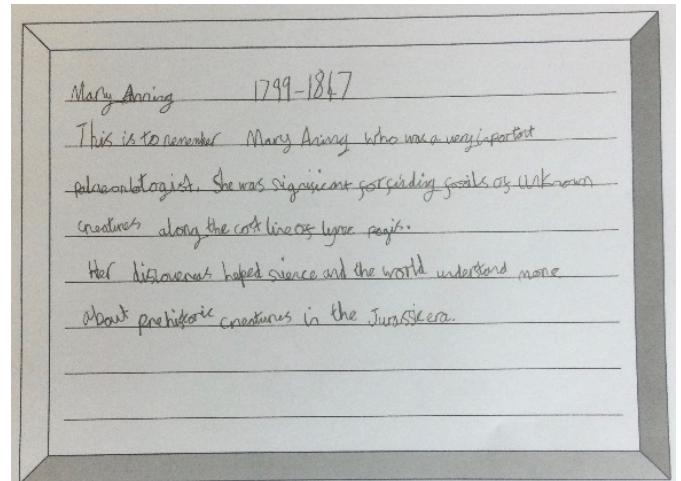 Mary Anning 1799-1847
This is to remember Mary Aning who was a very important
palaeontologist. She was significant for finding fossils of unknown
creatures along the cost line of lyme regis.
Her discoveries helped science and the world understand more
about prehistoric creatures in the Jurassic era.